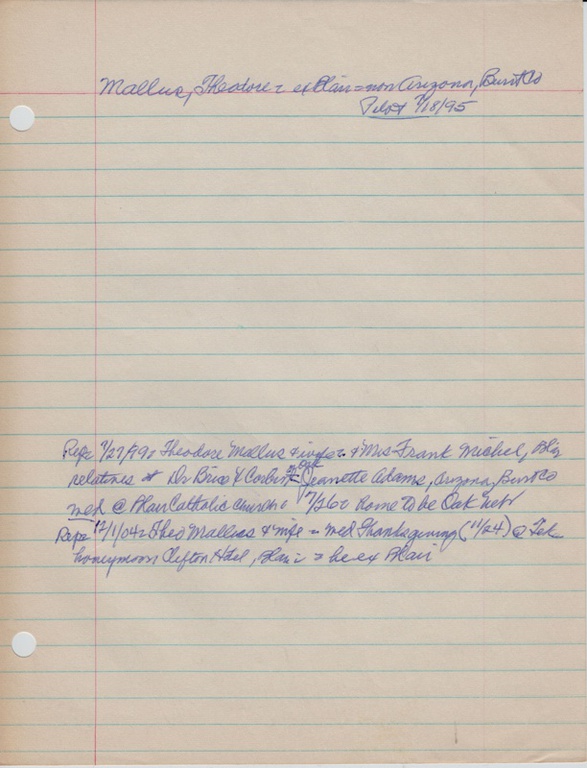 Mallus, Theodore = ex Blair = now Arizona, Burt Co
Pilot 7/18/95
Rep= 7/27/99= Theodore Mallus & wife = & Mrs Frank Michel, Blair
relatives of Dr Brice & Corbin Jeanette Adams, Arizona, Burt Co
wed @ Blair Catholic Church = 7/26 = home to be Oak
Repa 12/1/04 = Theo Mallus & wife = wed Thanksgiving (11/24) @ Tek
honeymoon Clifton Hotel, Blair = he ex Blair